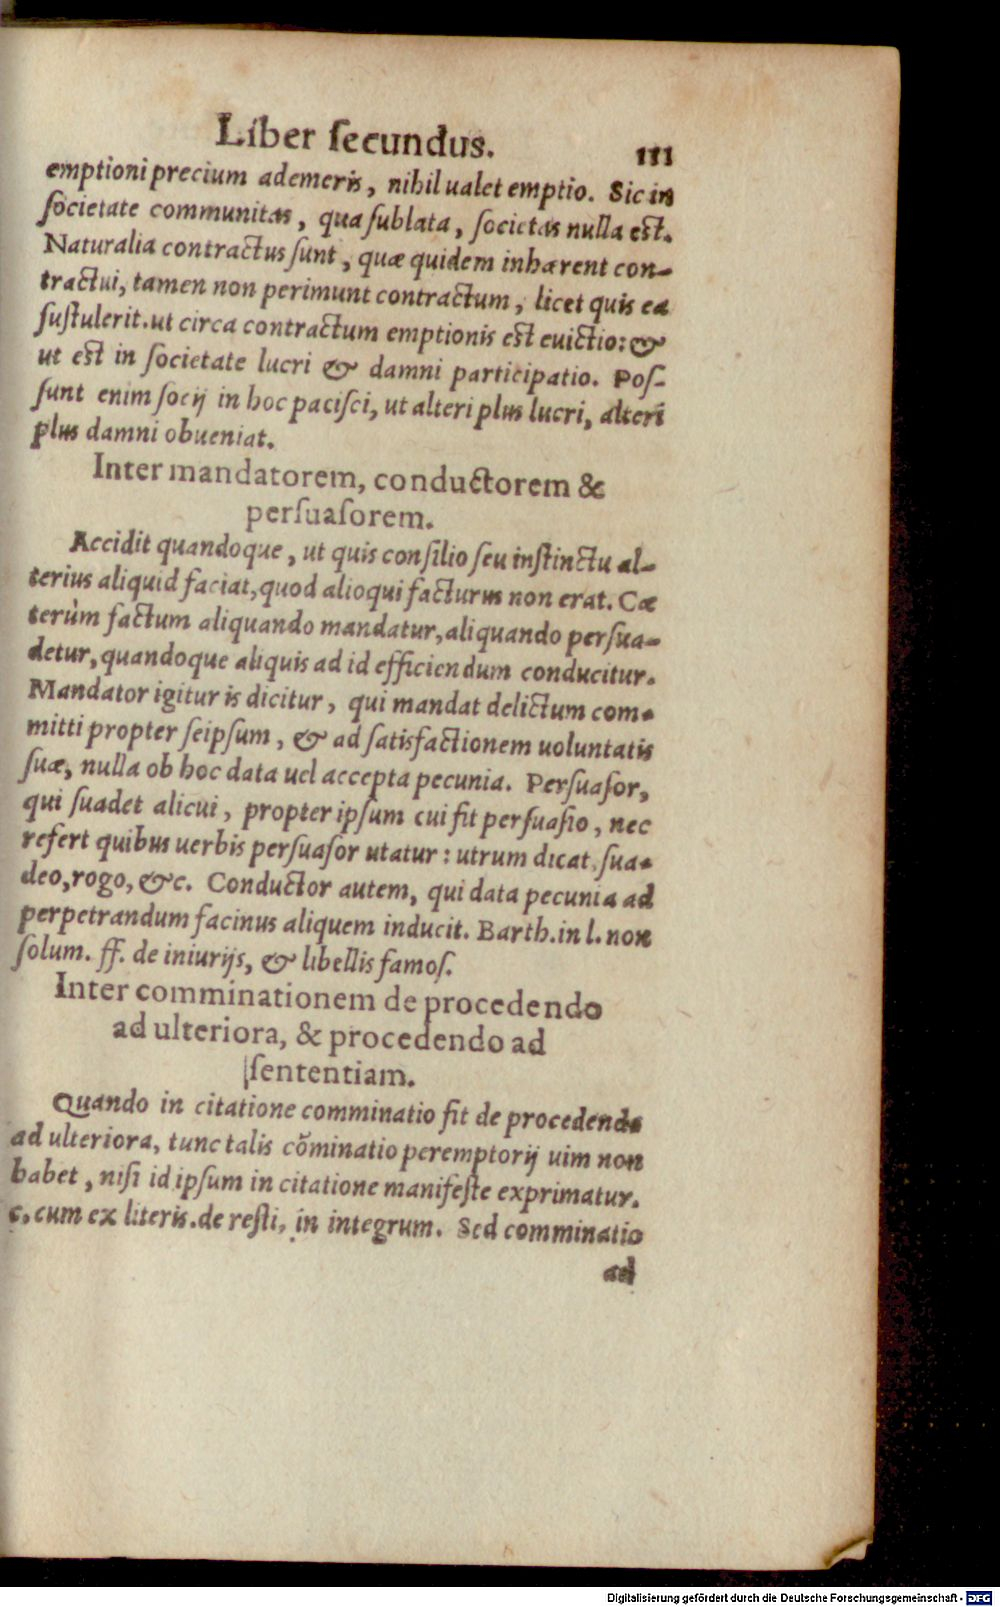 Liber ſecundus. 111
emptioni precium ademeris, nihil ualet emptio. Sic in
ſocietate communitas, qua ſublata, ſocietas nulla est.
Naturalia contractus ſunt, quæ quidem inhærent con-
tractui, tamen non perimunt contractum, licet quis ea
ſuſtulerit. ut circa contractum emptionis est euictio: &
ut est in ſocietate lucri & damni participatio. Poſ-
ſunt enim ſocij in hoc paciſci, ut alteri plus lucri, alteri
plus damni obueniat.
Inter mandatorem, conductorem &
perſuaſorem.
Accidit quandoque, ut quis conſilio ſeu inſtinctu al-
terius aliquid faciat, quod alioqui facturus non erat. Cæ
terùm factum aliquando mandatur, aliquando perſua-
detur, quandoque aliquis ad id efficiendum conducitur.
Mandator igitur is dicitur, qui mandat delictum com-
mitti propter ſeipſum, & ad ſatisfactionem uoluntatis
ſuæ, nulla ob hoc data uel accepta pecunia. Perſuaſor,
qui ſuadet alicui, propter ipſum cui fit perſuaſio, nec
refert quibus uerbis perſuaſor utatur: utrum dicat, ſua-
deo, rogo, &c. Conductor autem, qui data pecunia ad
perpetrandum facinus aliquem inducit. Barth. in l. non
ſolum. ff. de iniurijs, & libellis famoſ.
Inter comminationem de procedendo
ad ulteriora, & procedendo ad
ſententiam.
Quando in citatione comminatio fit de procedendo
ad ulteriora, tunc talis cõminatio peremptorij uim non
habet, niſi id ipſum in citatione manifeſte exprimatur.
c. cum ex literis. de reſti, in integrum. Sed comminatio
ad
Digitalisierung gefördert durch die Deutsche Forschungsgemeinschaft - DFG